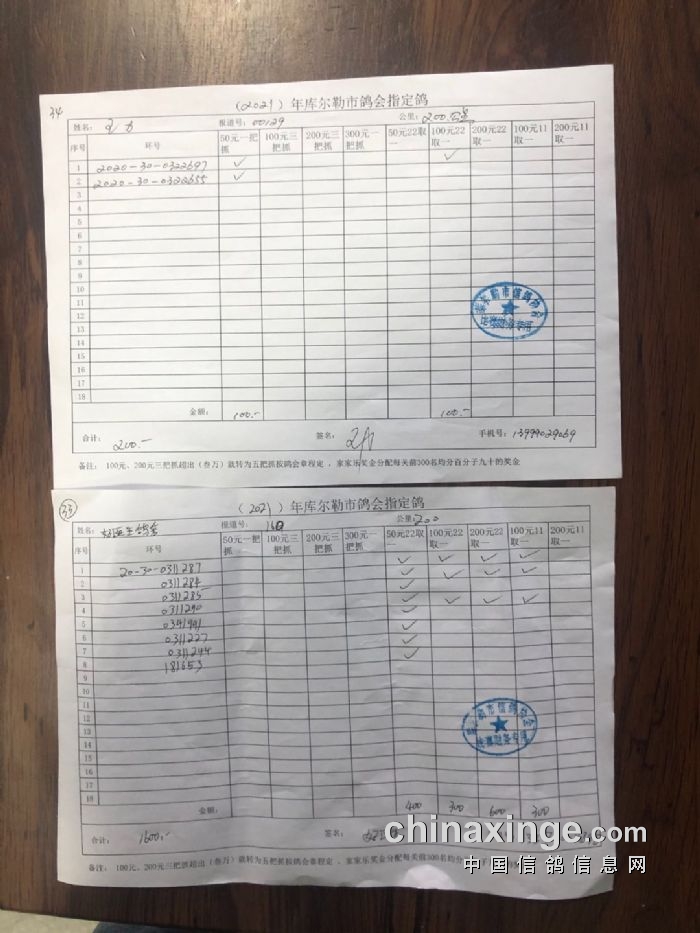 34
（2021）年库尔勒市鸽会指定鸽
姓名： 报道号：00129 公里：200公里
序号 环号 50元一把抓 100元三把抓 200元三把抓 300元一把抓 50元22取一 100元22取一 200元22取一 100元11取一 200元11取一
1 2020-30-0322697 ✓ ✓
2 2020-30-0322655 ✓
3
4
5
6
7
8
9
10
11
12
13
14
15
16
17
18
金额： 100.- 100.-
合计： 200.- 签名： 手机号：13999029069
备注： 100元、200元三把抓超出（叁万）就转为五把抓按鸽会章程定，家家乐奖金分配每关前300名均分百分子九十的奖金
库尔勒市信鸽协会
33
（2021）年库尔勒市鸽会指定鸽
姓名： 报道号： 公里：200
序号 环号 50元一把抓 100元三把抓 200元三把抓 300元一把抓 50元22取一 100元22取一 200元22取一 100元11取一 200元11取一
1 20-30-0311287 ✓ ✓ ✓ ✓
2 0311284 ✓ ✓ ✓ ✓
3 0311285 ✓ ✓ ✓ ✓
4 0311290 ✓
5 ✓
6 0311227 ✓
7 0311244 ✓
8 181653 ✓
9
10
11
12
13
14
15
16
17
18
金额： 400 300 600 300
合计： 1600.- 签名：
备注： 100元、200元三把抓超出（叁万）就转为五把抓按鸽会章程定，家家乐奖金分配每关前300名均分
chinaxinge.com
中国信鸽信息网